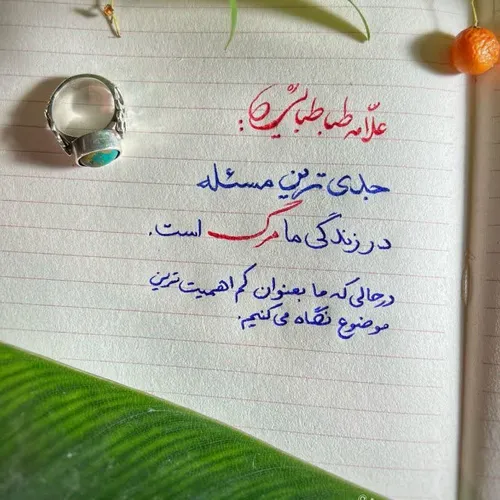 علّامه طباطبائی:
جدی ترین مسئله
در زندگی ما مرگ است.
درحالی که ما بعنوان کم اهمیت ترین
موضوع نگاه می‌کنیم.